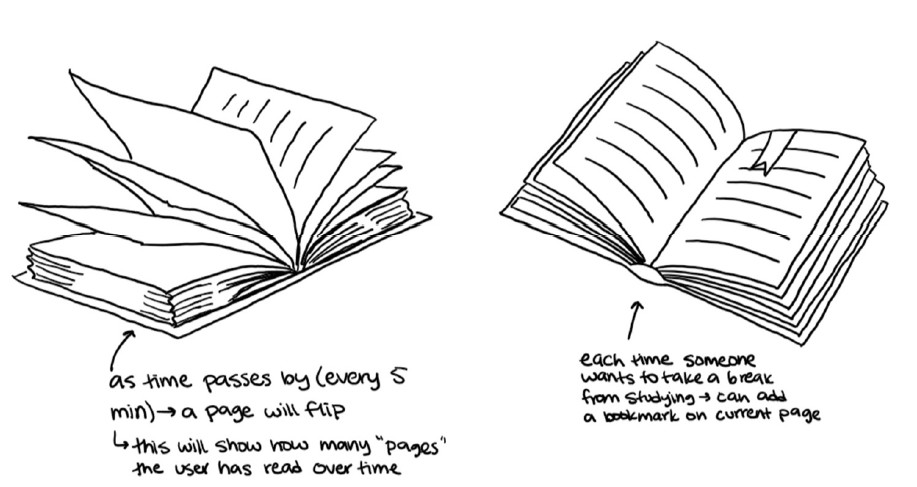 as time passes by (every 5
min)→ a page will flip
↳ this will show how many "pages"
the user has read over time
each time someone
wants to take a break
from studying → can add
a bookmark on current page